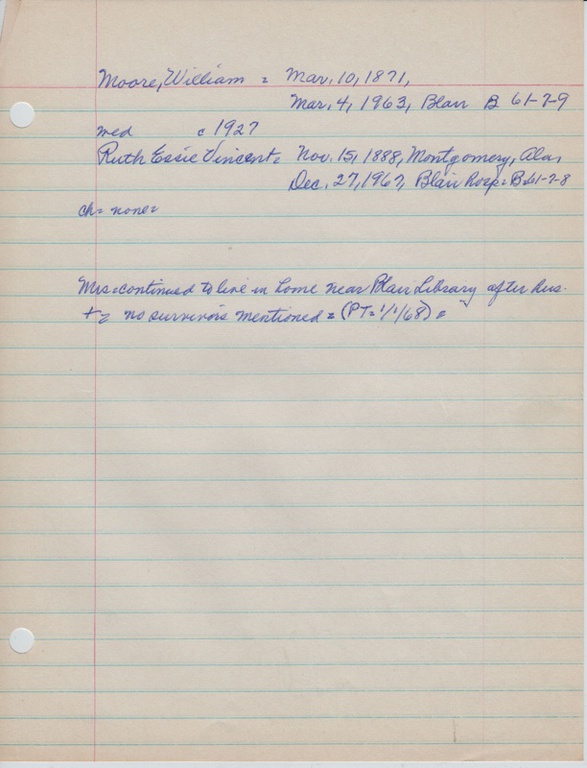 Moore, William = Mar. 10, 1871,
Mar. 4, 1963, Blair B 61-7-9
med c 1927
Ruth Essie Vincent = Nov. 15, 1888, Montgomery, Ala.,
Dec. 27, 1967, Blair hosp = B 61-7-8
ch = none =
Mrs = continued to live in home near Blair Library after hus-
+ = no survivors mentioned = (PT = 1/1/68) =